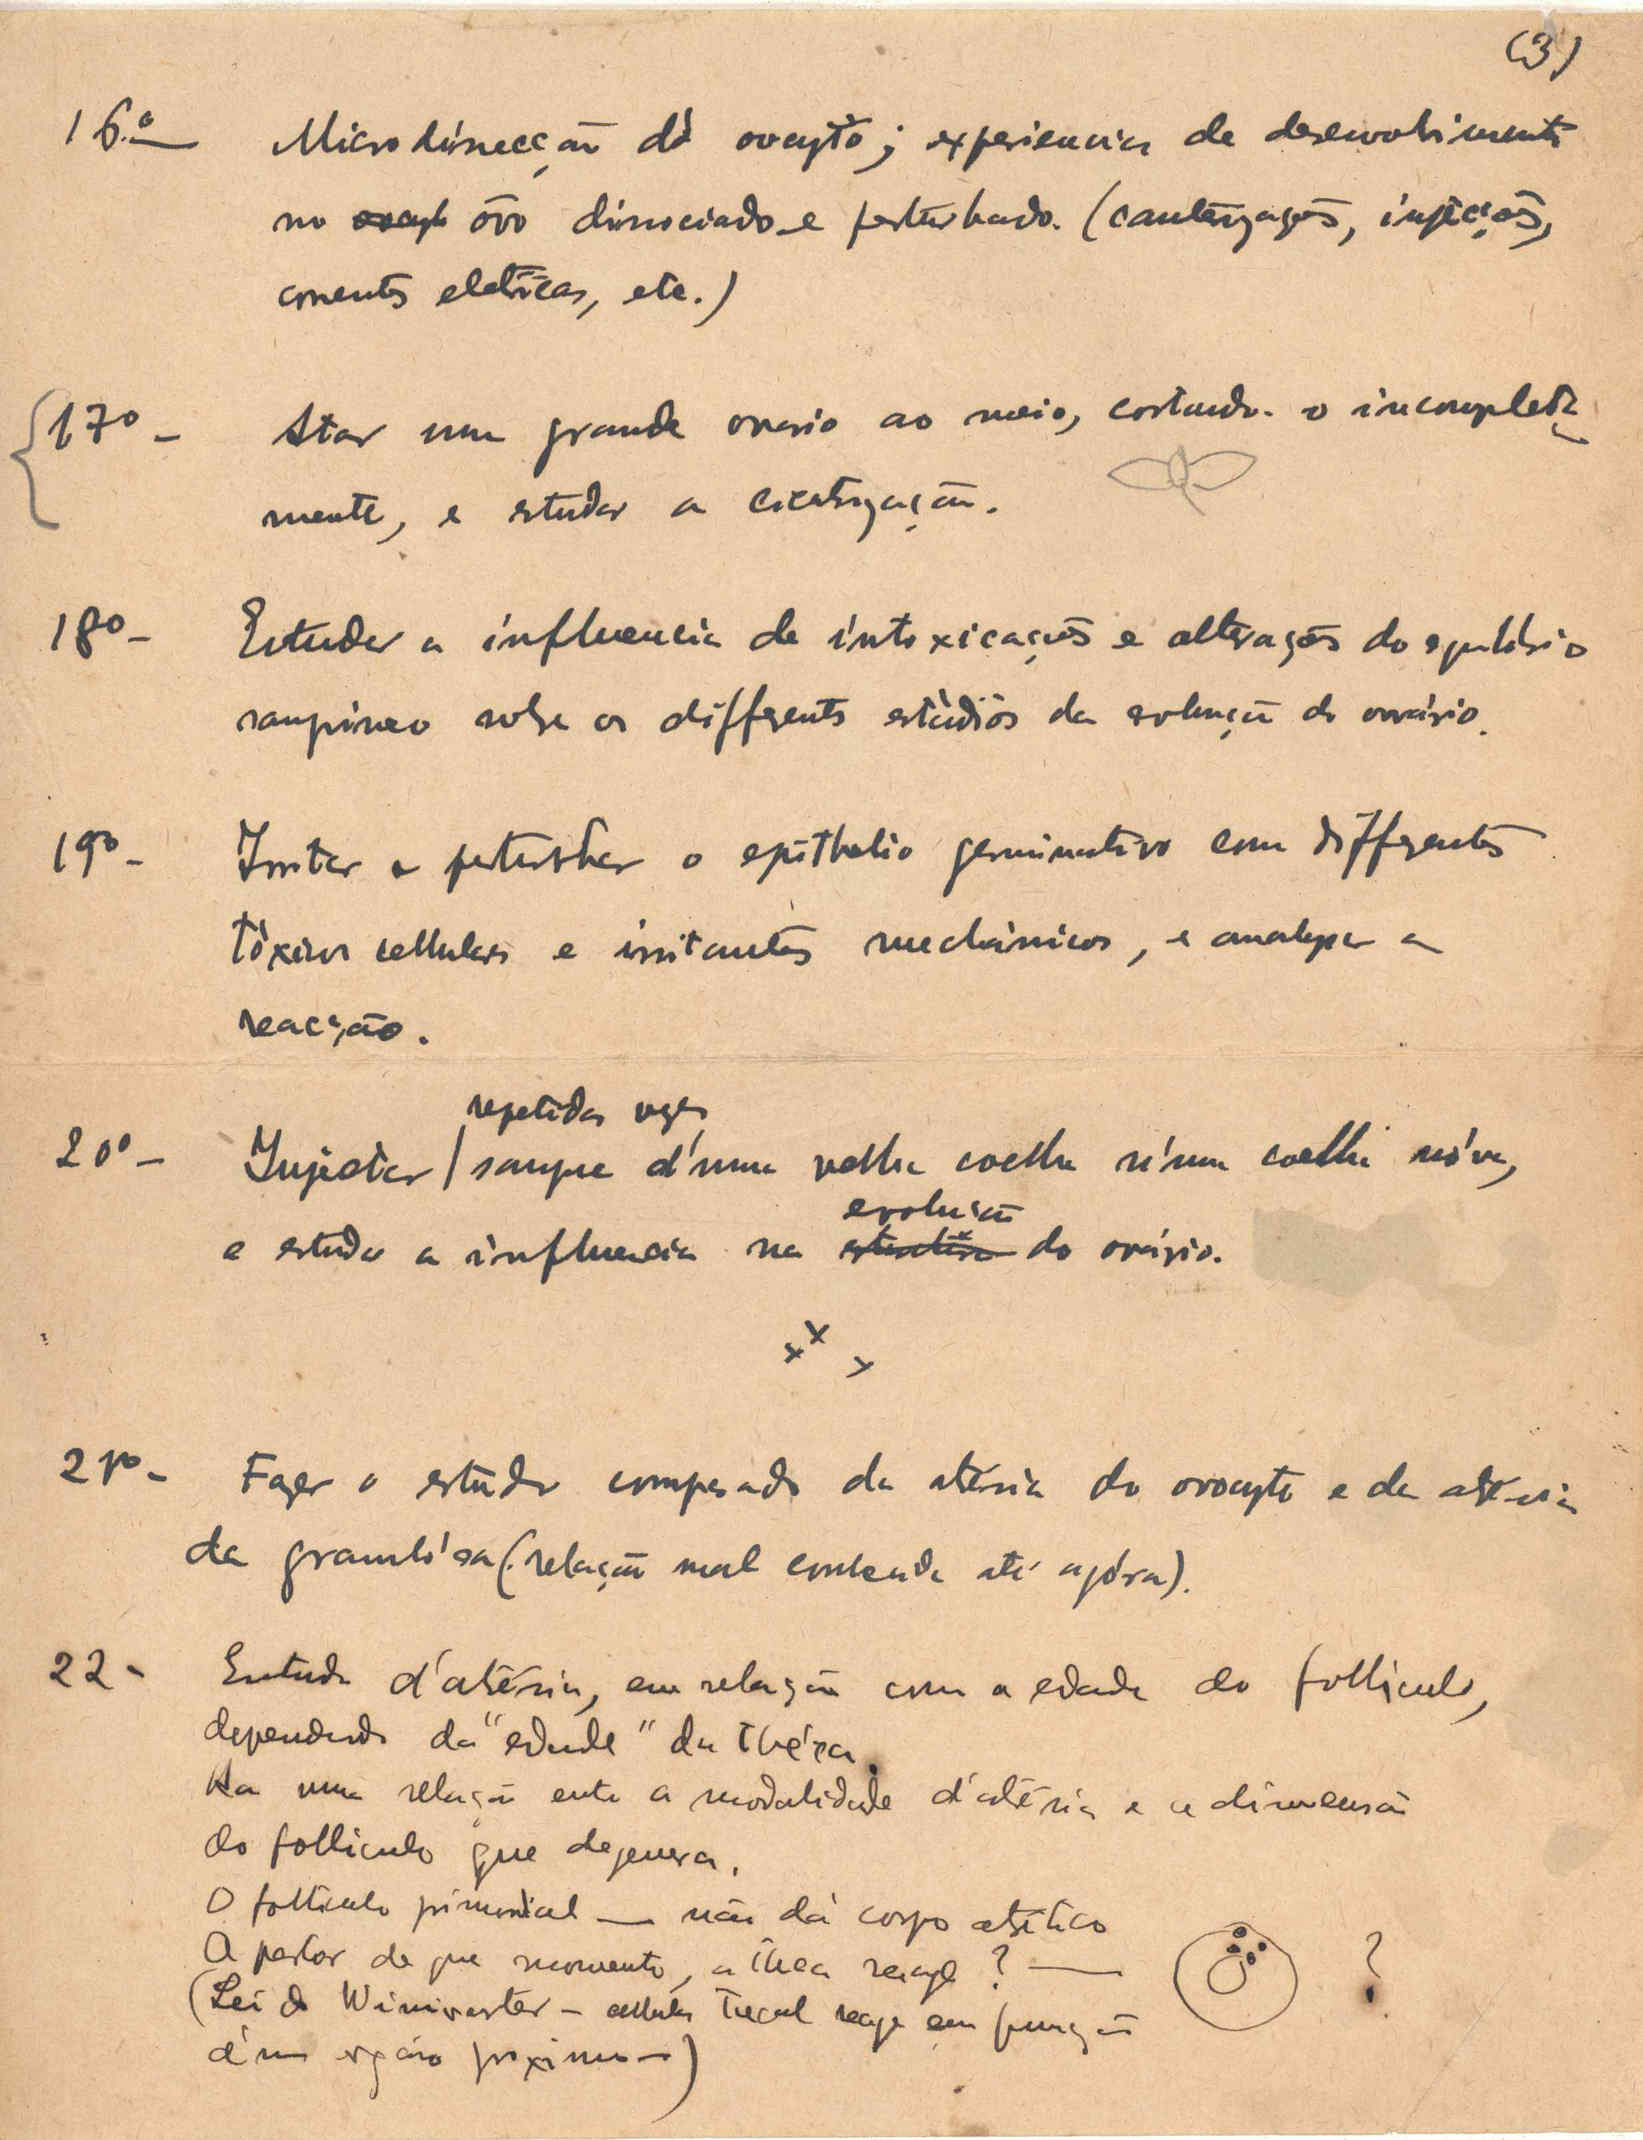 (3)
16.º — Microdissecção dó ovocyto; experiencia de desenvolvimento
no ovocyto ôvo dissociado e perturbado. (cauterizações, injecções,
correntes eletricas, etc.)
17º - Atar um grande ovario ao meio, cortando-o incompleta
mente, e estudar a cicatrização.
18º - Estudar a influencia de intoxicações e alterações do equilibrio
sanguineo sobre os differentes estádios da evolução do ovário.
19º - Irritar e perturbar o epithelio germinativo com differentes
tóxicos cellulares e irritantes mechânicos, e analysar a
reacção.
repetidas vezes
20º - Injectar / sangue d'uma velha coelha n'uma coelha nóva,
evolução
e estudar a influencia na estructura do ovário.
21º - Fazer o estudo comparado da atrésia do ovocyto e da atrésia
da granulósa (relação mal conhecida até agóra).
22 - Estudo d'atrésia, em relação com a edade do folliculo,
dependendo da "edade" da théca.
Ha uma relação entre a modalidade d'atrésia e a dimensão
do folliculo que degenera.
O folliculo primordial — não dá corpo atrético
A partir de que momento, a théca reage ? —
(Lei de Winiwarter - cellula thecal reage em função
d'um orgão proximo —)
?